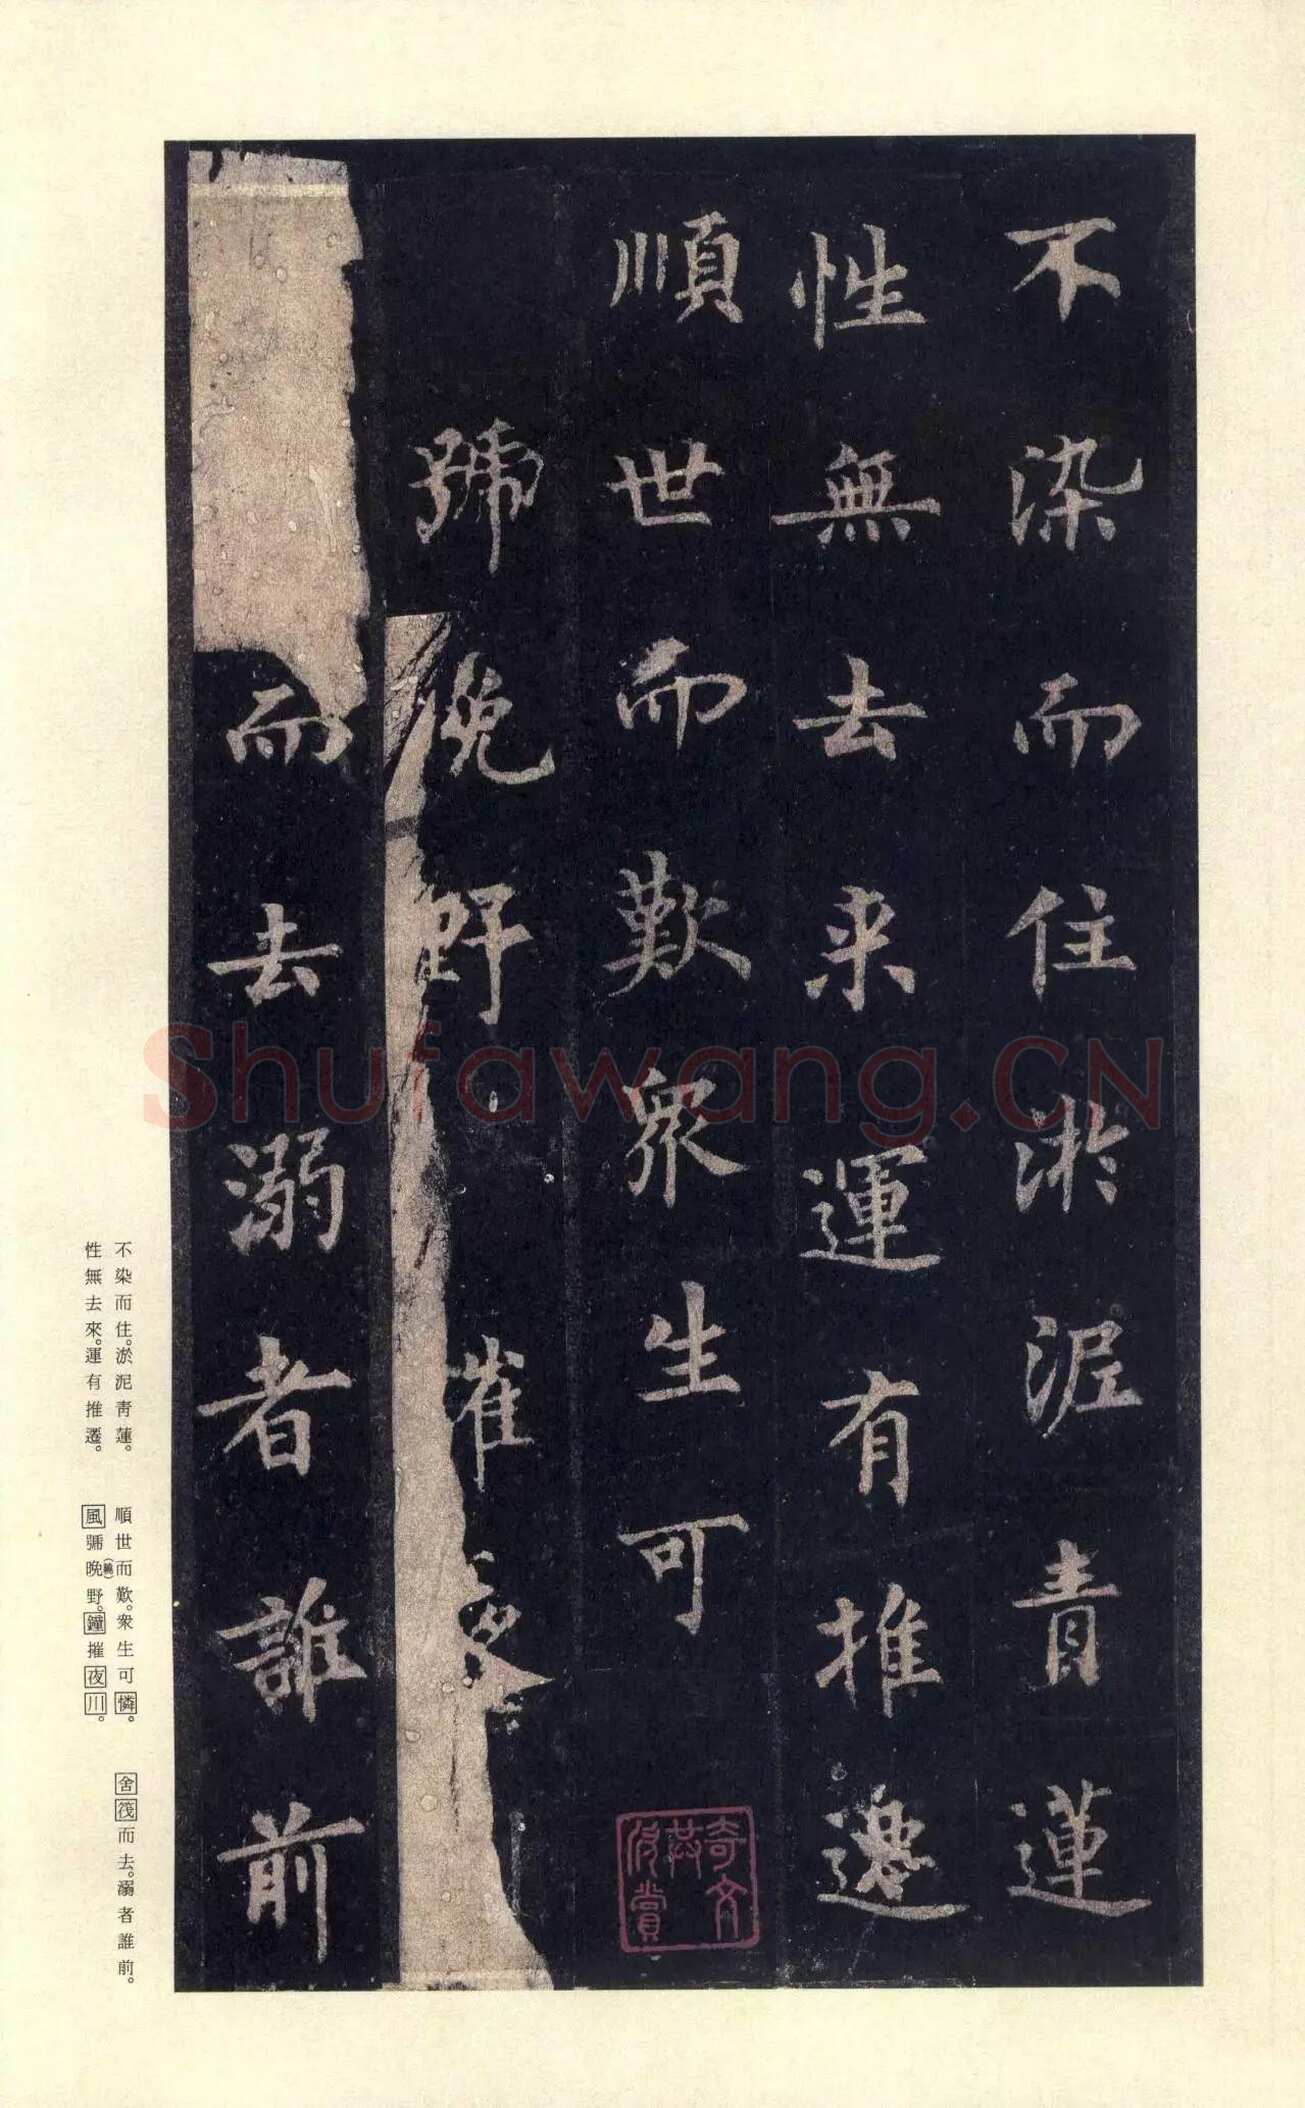 不染而住淤泥青蓮
性無去来運有推遷
順世而歎衆生可
號晚野摧夜
而去溺者誰前
奇文共欣賞
不染而住。淤泥青蓮。
性無去來。運有推遷。
順世而歎。衆生可憐。
風號晚野。鐘摧夜川。
舍筏而去。溺者誰前。
Shufawang.CN